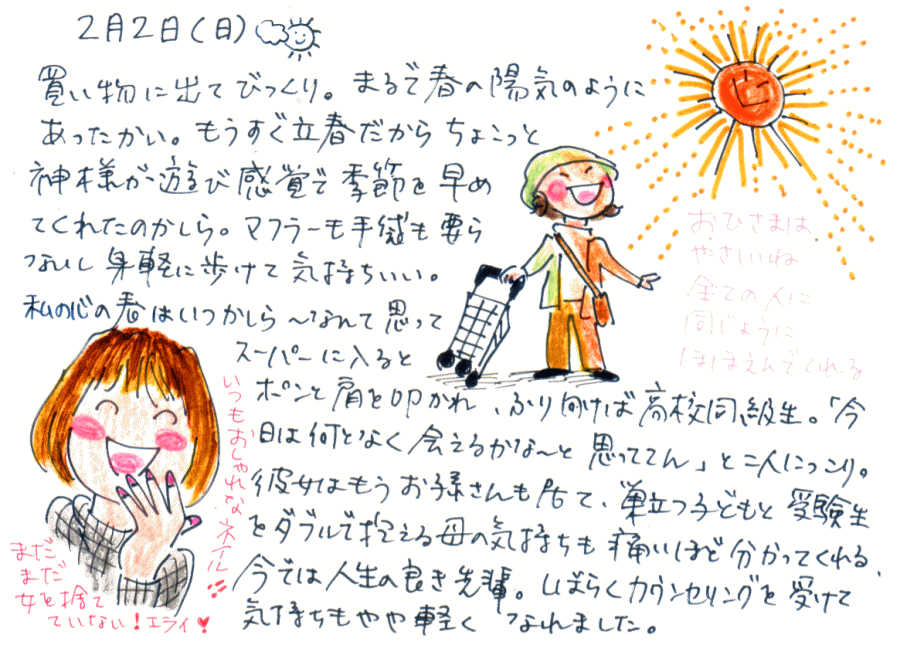 2月2日(日)
買い物に出てびっくり。まるで春の陽気のように
あったかい。もうすぐ立春だからちょこっと
神様が遊び感覚で季節を早め
てくれたのかしら。マフラーも手袋も要ら
ないし身軽に歩けて気持ちいい。
私の心の春はいつかしら〜なんて思って
スーパーに入ると
ポンと肩を叩かれ、ふり向けば高校同級生。「今
日は何となく会えるかな〜と思っててん」と二人にっこり。
彼女はもうお孫さんも居て、巣立つ子どもと受験生
をダブルで抱える母の気持ちも痛いほど分かってくれる、
今では人生の良き先輩。しばらくカウンセリングを受けて
気持ちもやや軽くなれました。
おひさまは、
やさしいね
全ての人に
同じように
ほほえんでくれる
いつもおしゃれなネイル!!
まだ
まだ
女を捨て
ていない!エライ♥